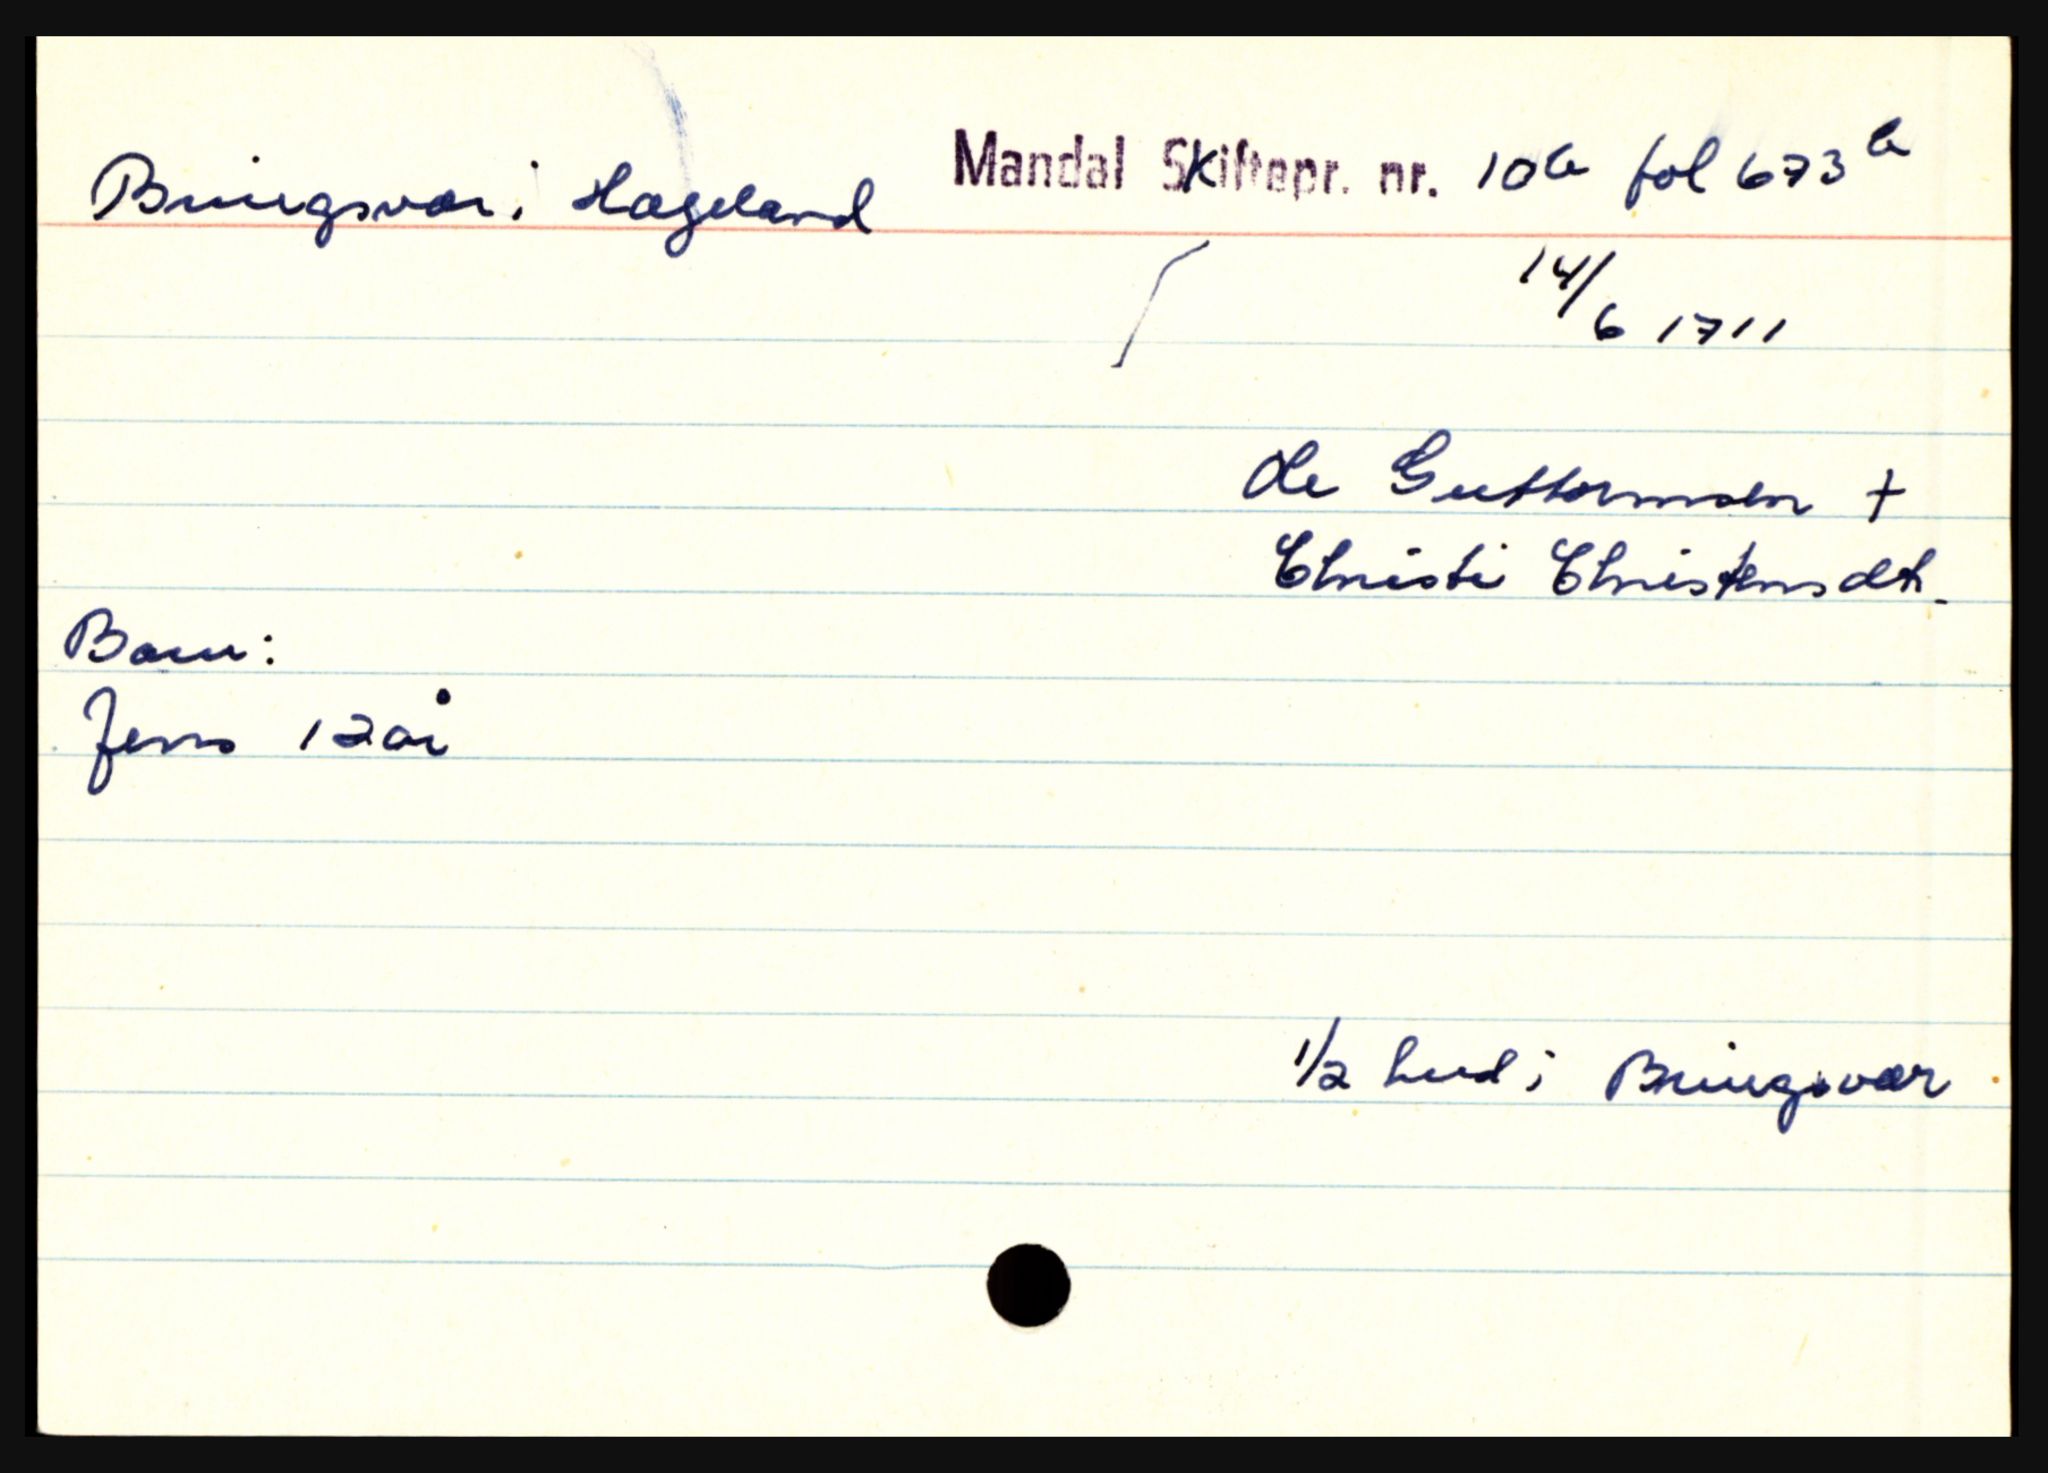 Bringsvær i Hægeland Mandal Skiftepr. nr. 10b fol 673b
14/6 1711
Ole Guttormsen +
Christi Christensdtr.
Barn:
Jens 12 år
1/2 hud i Bringsvær